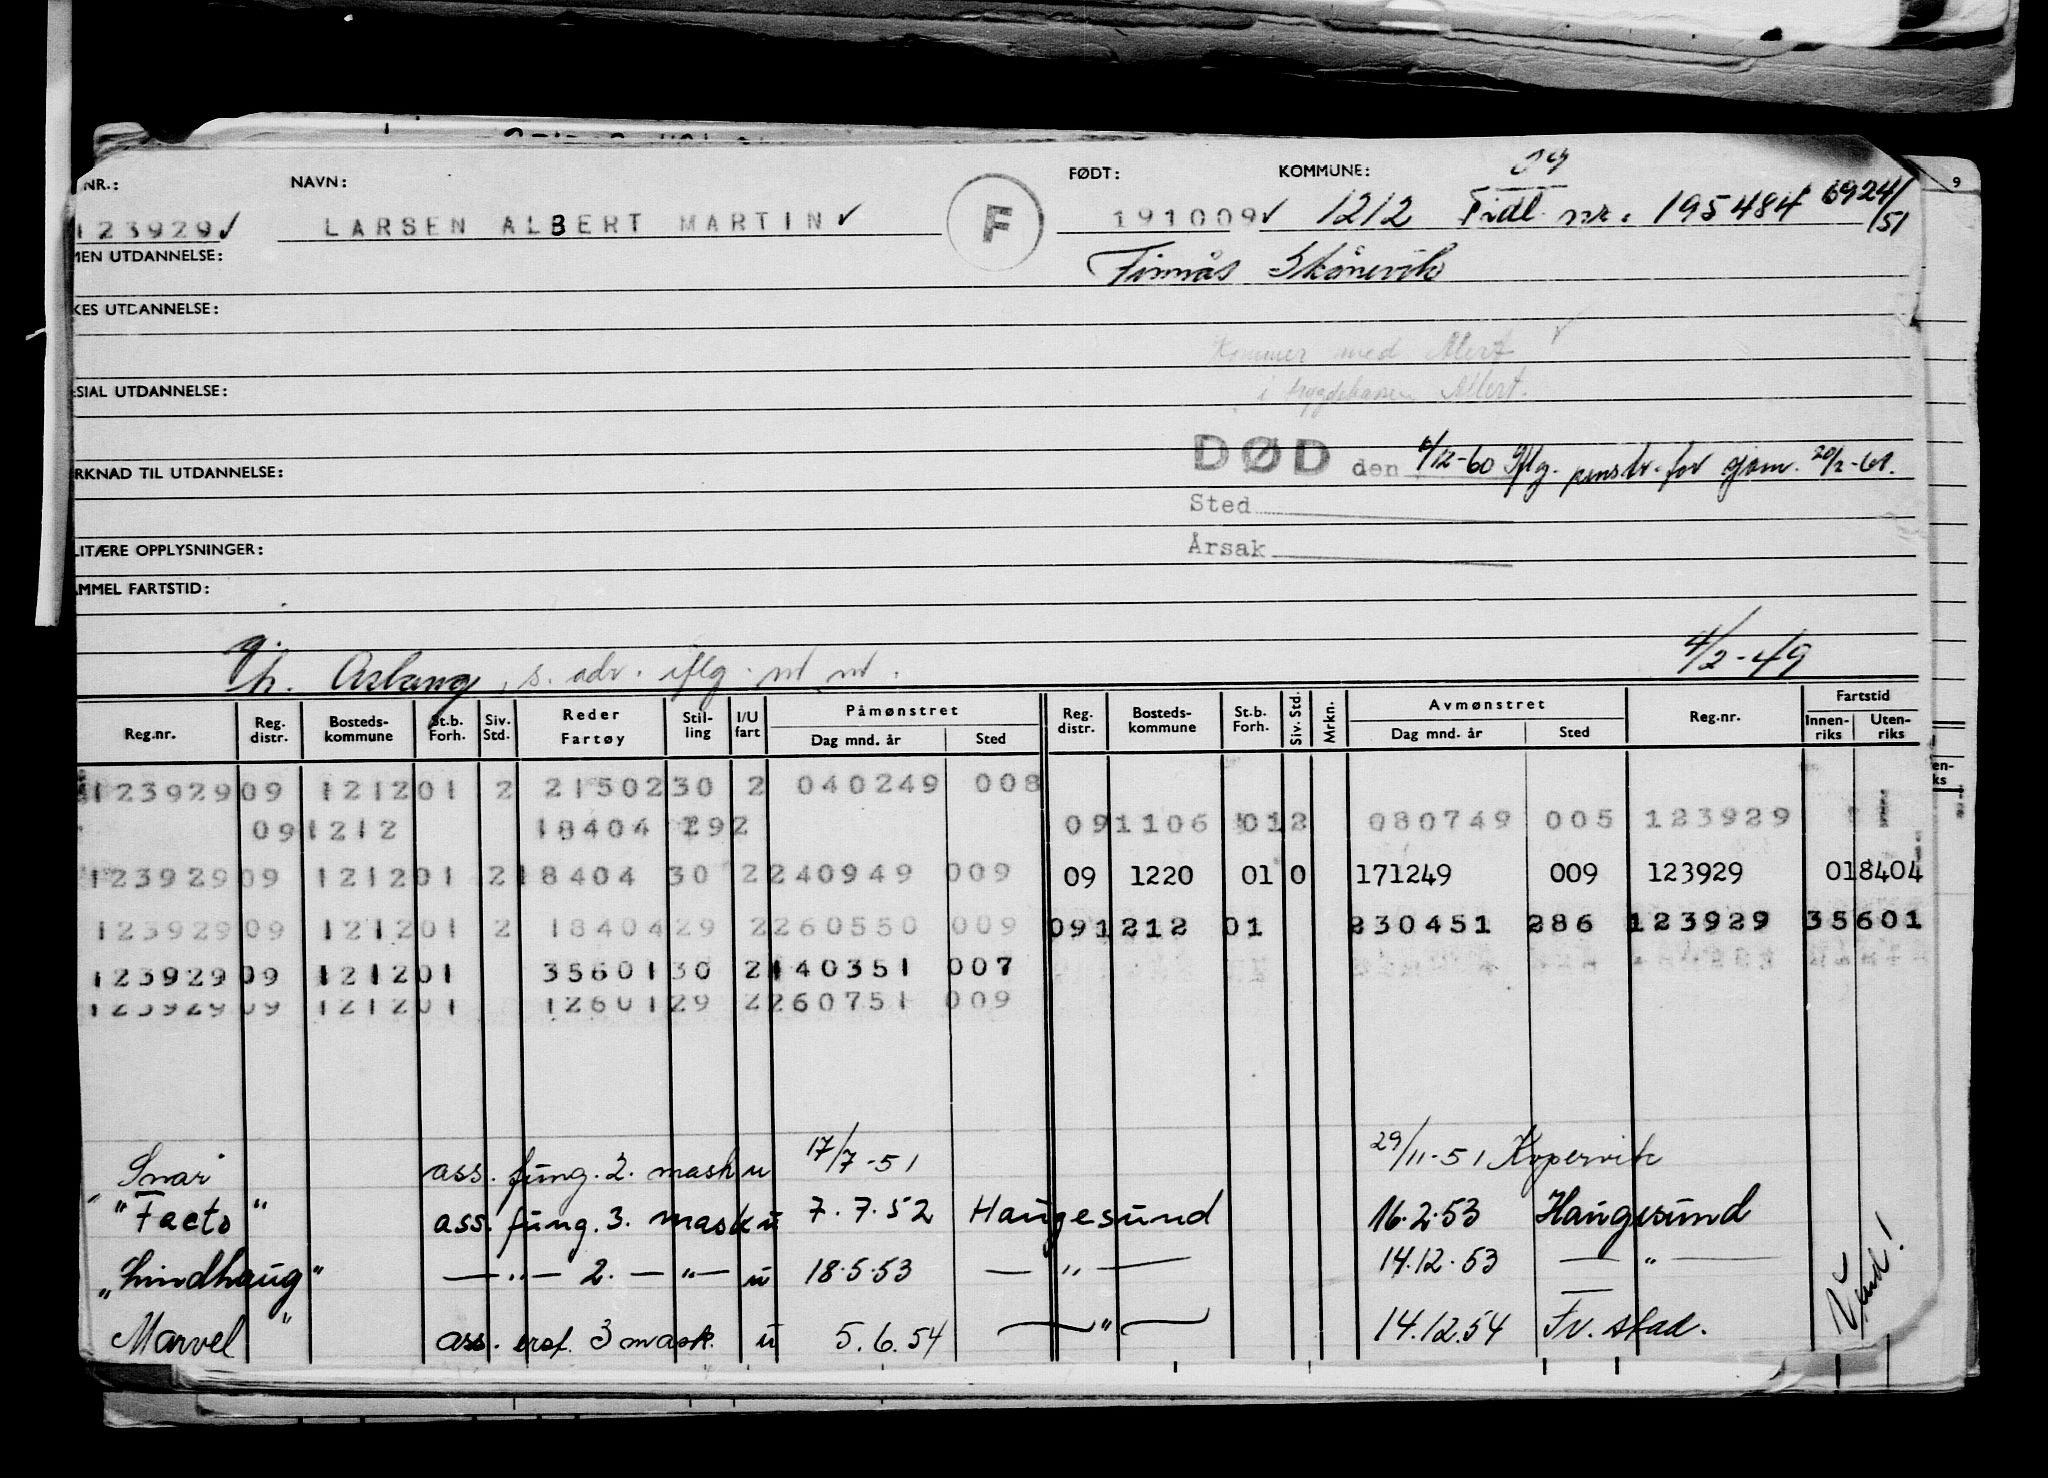 NR.: NAVN: FØDT: KOMMUNE: 09
123929✓ LARSEN ALBERT MARTIN✓ F 191009✓ 1212 Tidl. nr. 195484 6924/51
MEN UTDANNELSE: Finnås Skånevik
KES UTDANNELSE:
Kommer med Alert ✓
SIAL UTDANNELSE: i Alert.
DØD den 6/12-60 iflg. for sjøm. 20/2-61.
RKNAD TIL UTDANNELSE:
Sted
LITÆRE OPPLYSNINGER: Årsak
AMMEL FARTSTID:
Aslaug, s. adv. iflg. 4/2-49
Reg.nr. Reg. distr. Bosteds-kommune St.b. Forh. Siv. Std. Reder Fartøy Stil-ling I/U fart Påmønstret Dag mnd. år Sted Reg. distr. Bosteds-kommune St.b. Forh. Siv. Std. Mrkn. Avmønstret Dag mnd. år Sted Reg.nr. Fartstid Innen-riks Uten-riks
123929 09 1212 01 2 21502 30 2 040249 008
09 1212 18404 292 09 1106 01 2 080749 005 123929
123929 09 1212 01 2 18404 30 2 240949 009 09 1220 01 0 171249 009 123929 018404
123929 09 1212 01 2 18404 29 2 260550 009 09 1212 01 230451 286 123929 35601
123929 09 1212 01 35601 30 2 140351 007
123929 09 1212 01 12601 29 2 260751 009
"Snar" ass. fung. 2. mask u 17/7-51 29/11-51 Kopervik
"Facto" ass. fung. 3. mask u 7.7.52 Haugesund 16.2.53 Haugesund
"Lindhaug" —"— 2. —"— u 18.5.53 —"— 14.12.53 —"—
Marvel" ass. erst. 3 mask. u 5.6.54 —"— 14.12.54 Fr. stad.
Vend!